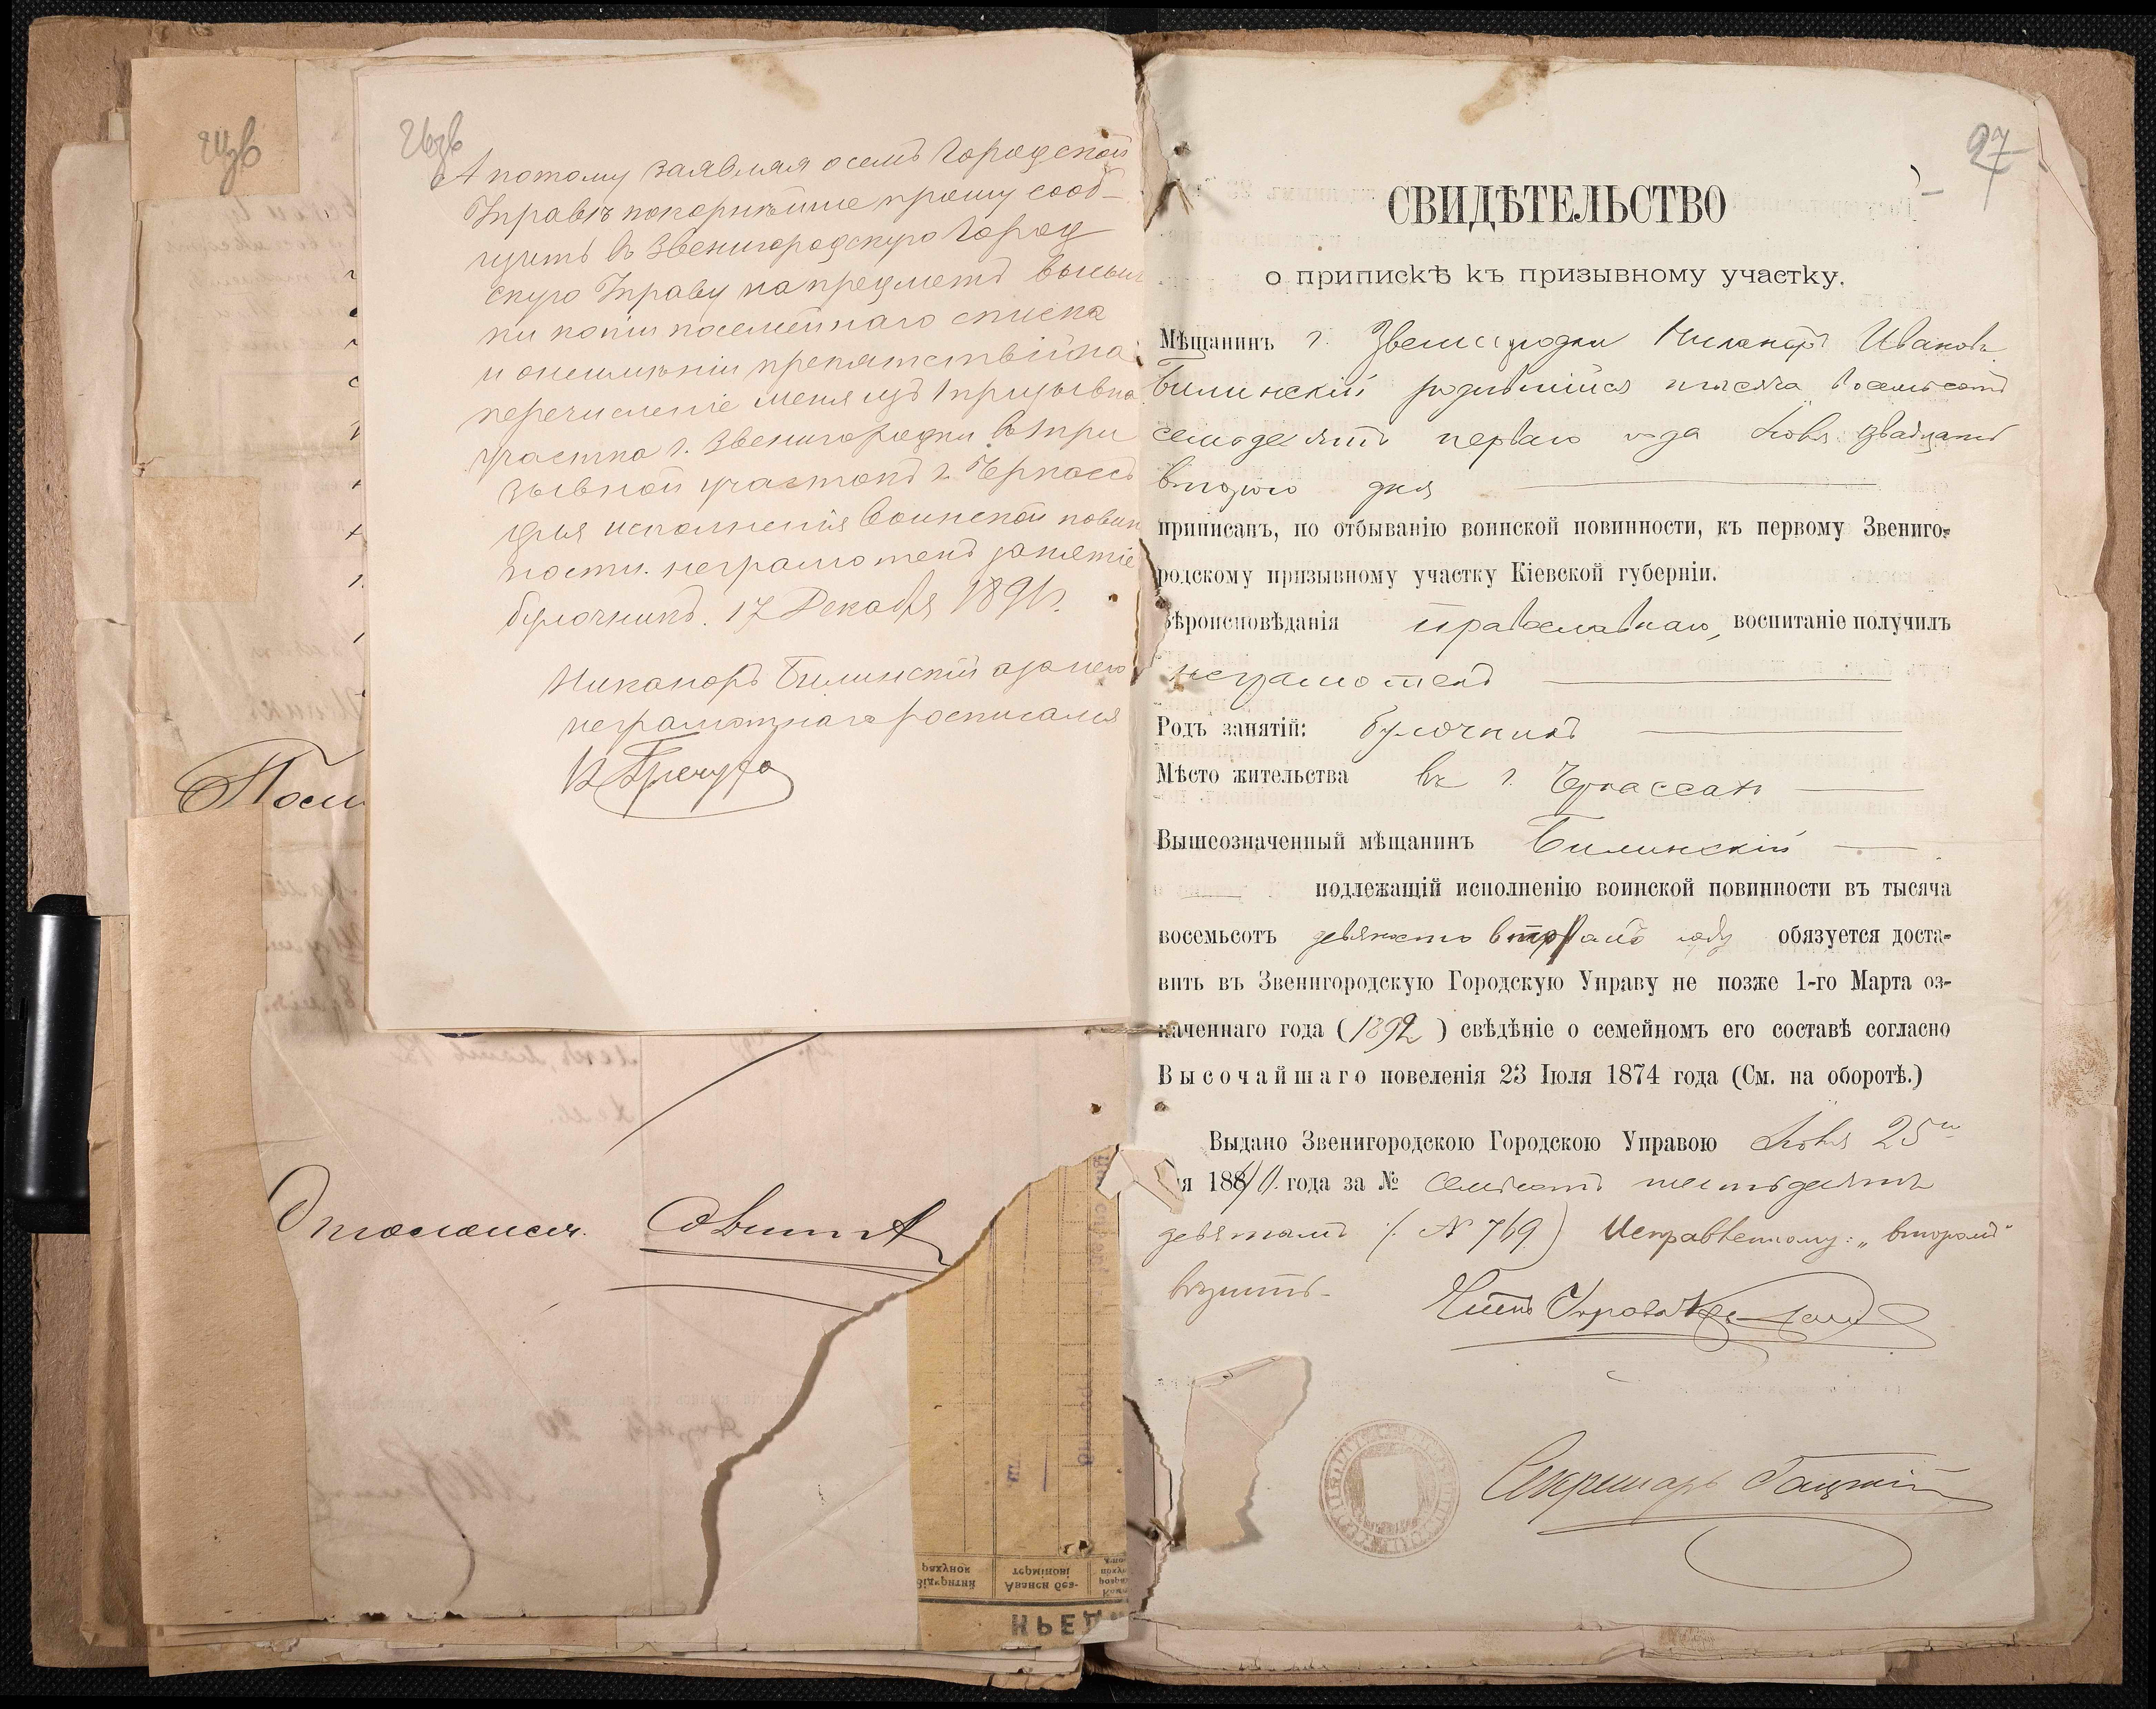 26зв
А потому заявляя о семъ Городской
Управѣ покорнѣйше прошу сооб-
щить въ Звенигородскую Город
скую Управу на предметъ высыл
ки копіи посемейнаго списка
и неимѣніи препятствій на
перечисленіе меня изъ 1 призывна
участка г. Звенигородки въ при
зывной участокъ г. Черкассъ
для исполненія воинской повин
ности. неграмотенъ занятіе
булочникъ. 17 Декабря 1891 г.
Никаноръ Билинскій а за него
неграмотнаго росписался
Посл
Отослался.
рахунок
Відкритий
термінові
Аванси без-
КРЕД
27
СВИДѢТЕЛЬСТВО
о припискѣ къ призывному участку.
Мѣщанинъ г. Звенигородки Никаноръ Ивановъ
Билинскій родившійся тысяча восемьсотъ
семьдесятъ перваго года Іюля двадцать
втораго дня
приписанъ, по отбыванію воинской повинности, къ первому Звениго-
родскому призывному участку Кіевской губерніи.
Вѣроисповѣданія православнаго, воспитаніе получилъ
неграмотенъ
Родъ занятій: булочникъ
Мѣсто жительства въ г. Черкассахъ
Вышеозначенный мѣщанинъ Билинскій
подлежащій исполненію воинской повинности въ тысяча
восемьсотъ девяносто второмъ году обязуется доста-
вить въ Звенигородскую Городскую Управу не позже 1-го Марта оз-
наченнаго года (1892) свѣдѣніе о семейномъ его составѣ согласно
Высочайшаго повеленія 23 Іюля 1874 года (См. на оборотѣ.)
Выдано Звенигородскою Городскою Управою Іюля 25го
дня года за № семьсотъ шестьдесятъ
девятымъ (№ 769) Исправленному: „второмъ"
вѣрить.
Членъ Управы
Секретарь